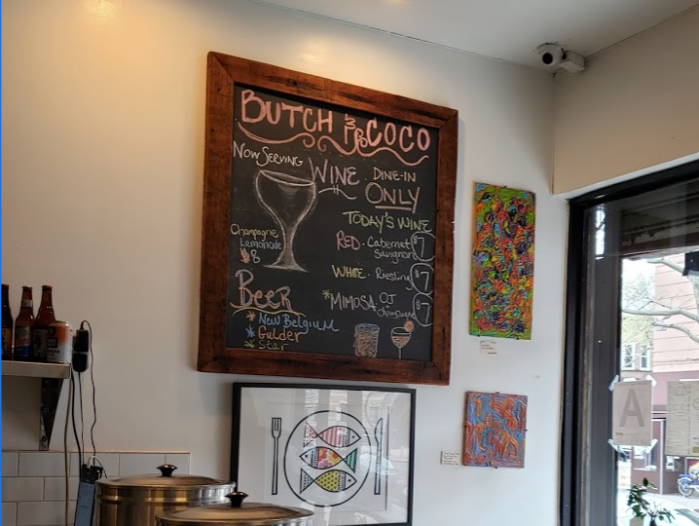 BUTCH & COCO
Now Serving
WINE. DINE-IN
ONLY
TODAY'S WINE
RED. Cabernet
Sauvignon $7
Champagne
Lemonade
$8
WHITE. Riesling $7
*MIMOSA OJ
+ Champagne $7
BEER
* NEW BELGIUM
* Gulder
* Star
A